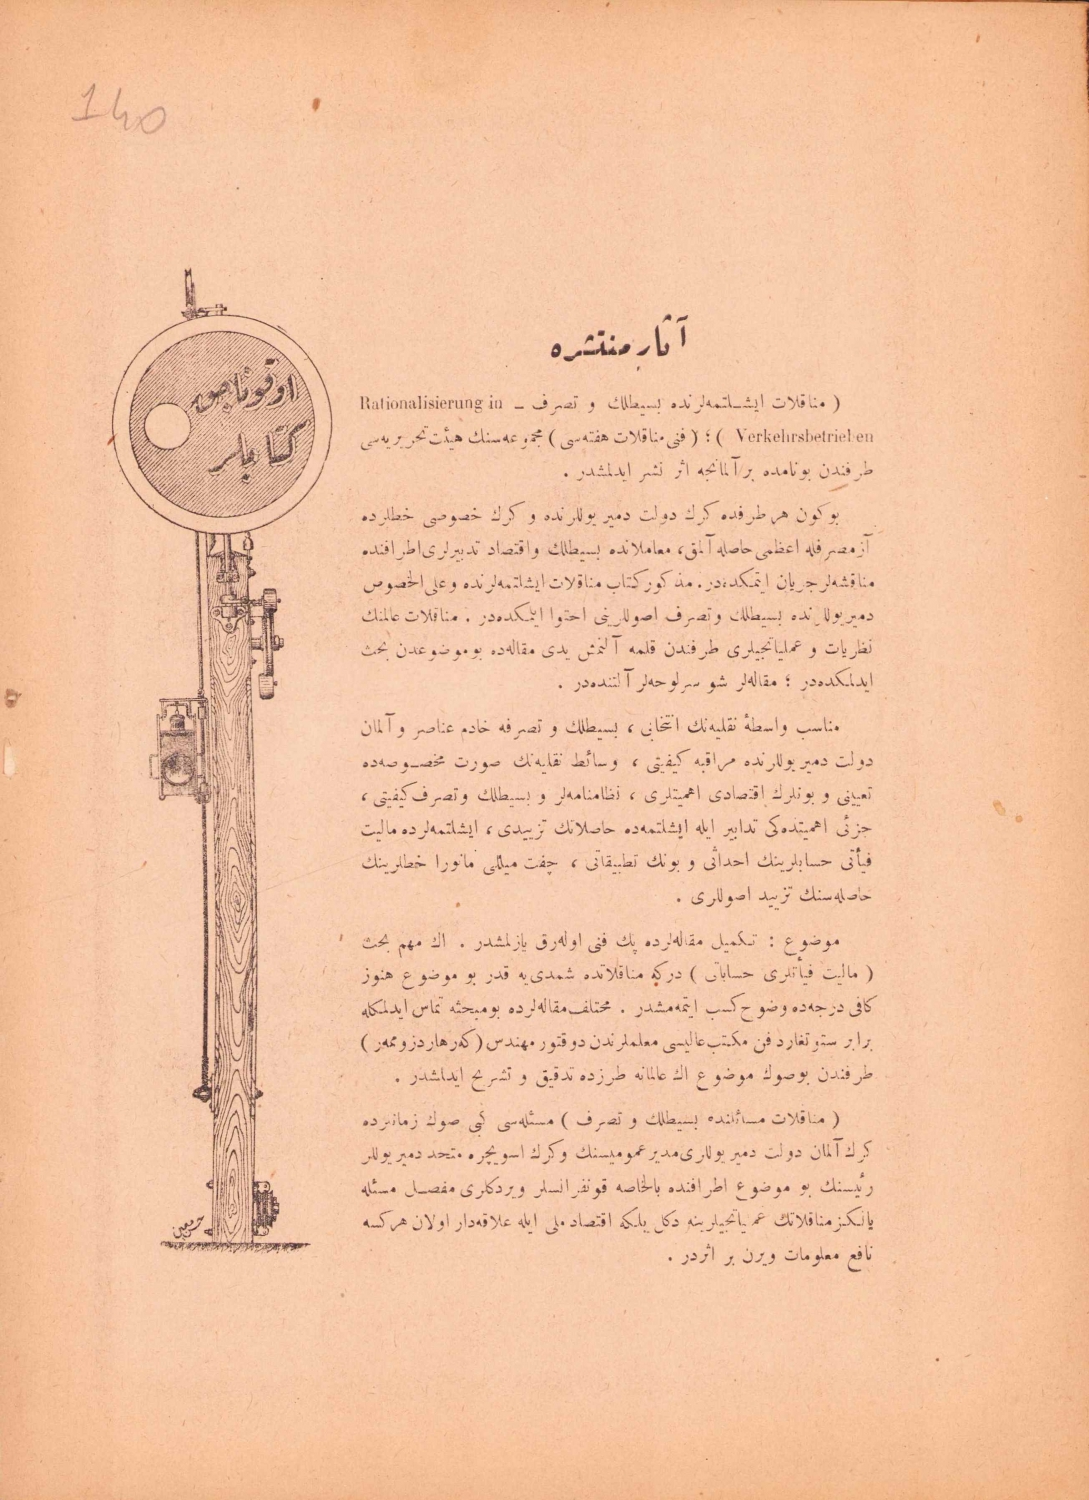 140
اوقوناجق
كتابلر
آثار منتشره
( مناقلات ايشلتمه‌لرنده بسيطلك و تصرف ــ Rationalisierung in
Verkehrsbetrieben ) ؛ ( فنى مناقلات هفته‌سى ) مجموعه‌سنك هيئت تحريريه‌سى
طرفندن بونامده بر آلمانجه اثر نشر ايدلمشدر .
بوكون هر طرفده كرك دولت دمير يوللرنده و كرك خصوصى خطلرده
آز مصرفله اعظمى حاصله آلمق، معاملاتده بسيطلك واقتصاد تدبيرلرى اطرافنده
مناقشه‌لر جريان ايتمكده‌در. مذكور كتاب مناقلات ايشلتمه‌لرنده وعلى الخصوص
دمير يوللرنده بسيطلك وتصرف اصوللرينى احتوا ايتمكده‌در . مناقلات عالمنك
نظريات و عملياتجيلرى طرفندن قلمه آلنمش يدى مقاله‌ده بوموضوعدن بحث
ايدلمكده‌در ؛ مقاله‌لر شو سرلوحه‌لر آلتنده‌در .
مناسب واسطهٔ نقليه‌نك انتخابى ، بسيطلك و تصرفه خادم عناصر و آلمان
دولت دمير يوللرنده مراقبه كيفيتى ، وسائط نقليه‌نك صورت مخصوصه‌ده
تعيينى و بونلرك اقتصادى اهميتلرى ، نظامنامه‌لر و بسيطلك وتصرف كيفيتى ،
جزئى اهميتده‌كى تدابير ايله ايشلتمه‌ده حاصلاتك تزييدى ، ايشلتمه‌لرده ماليت
فيأتى حسابلرينك احداثى و بونك تطبيقاتى ، چفت ميللى مانورا خطلرينك
حاصله‌سنك تزييد اصوللرى .
موضوع : تكميل مقاله‌لرده پك فنى اوله‌رق يازلمشدر . اك مهم بحث
( ماليت فيأتلرى حساباتى ) دركه مناقلاتده شمدى‌يه قدر بو موضوع هنوز
كافى درجه‌ده وضوح كسب ايتمه‌مشدر . مختلف مقاله‌لرده بومبحثه تماس ايدلمكله
برابر ستوتغارد فن مكتب عاليسى معلملرندن دوقتور مهندس (كه‌رهاردزوممر )
طرفندن بوصوك موضوع اك عالمانه طرزده تدقيق و تشريح ايدلمشدر .
( مناقلات مسائلنده بسيطلك و تصرف ) مسئله‌سى كبى صوك زمانلرده
كرك آلمان دولت دمير يوللرى مدير عموميسنك وكرك اسويچره متحد دمير يوللر
رئيسنك بو موضوع اطرافنده بالخاصه قونفرانسلر ويردكلرى مفصل مسئله
يالكز مناقلاتك عملياتجيلرينه دكل بلكه اقتصاد ملى ايله علاقه‌دار اولان هركسه
نافع معلومات ويرن بر اثردر .